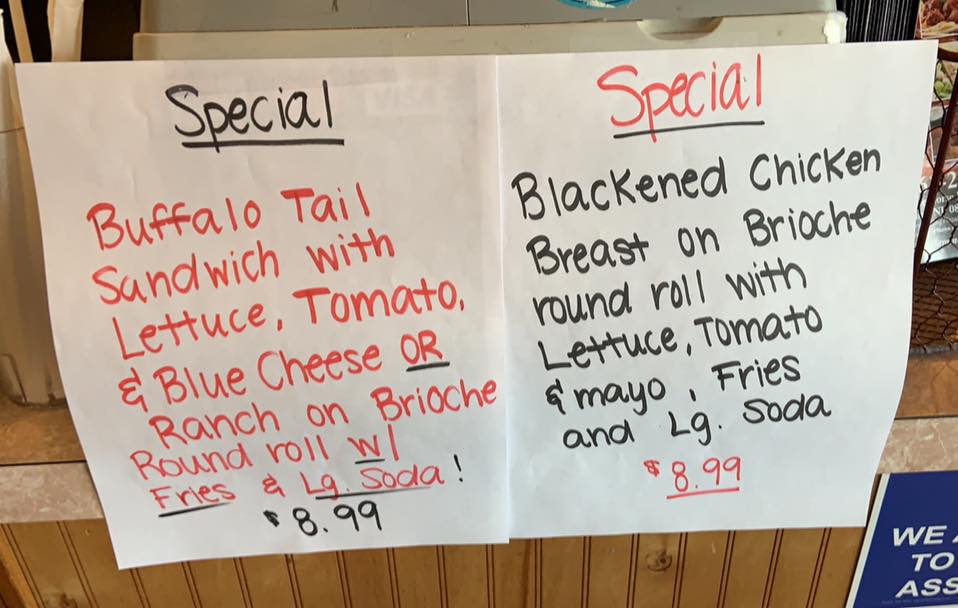 Special
Buffalo Tail
Sandwich with
Lettuce, Tomato,
& Blue Cheese OR
Ranch on Brioche
Round roll w/
Fries & Lg. Soda!
$8.99
Special
Blackened Chicken
Breast on Brioche
round roll with
Lettuce, Tomato
& mayo, Fries
and Lg. Soda
$8.99
WE
TO
ASS